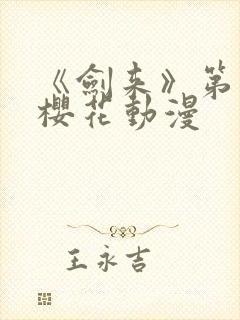 《劍來》第
櫻花動漫
王永吉